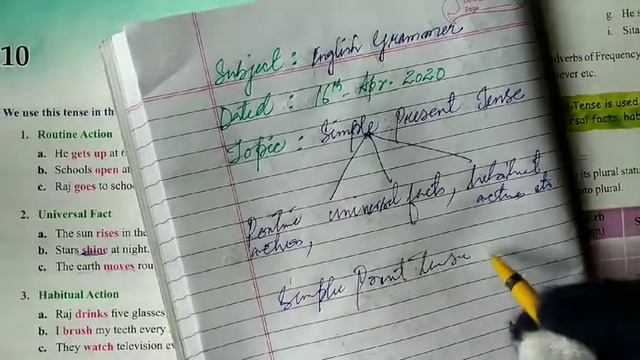 10
We use this tense in th
1. Routine Action
a. He gets up at 6
b. Schools open at
c. Raj goes to schoo
2. Universal Fact
a. The sun rises in the
b. Stars shine at night.
c. The earth moves rou
3. Habitual Action
a. Raj drinks five glasses
b. I brush my teeth every
c. They watch television ev
Subject : English Grammer
Dated : 16th - Apr. 2020
Topic : Simple Present Tense
Routine action, universal facts,
Simple Tense
Page
g. He s
i. Sita
dverbs of Frequency
ever etc.
Tense is used
rsal facts, hab
its plural
to plural.
rb
S